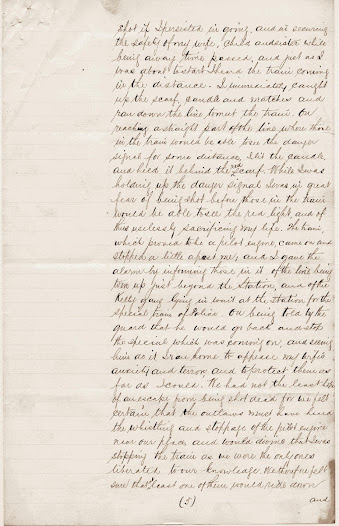 shot if I persisted in going, and in securing
the safety of my wife, child and sister while
being away time passed, and just as I
was about to start I heard the train coming
in the distance. I immediately caught
up the scarf, candle and matches and
ran down the line to meet the train. On
reaching a straight part of the line where those
in the train would be able to see the danger
signal for some distance, I lit the candle
and held it behind the red scarf. While I was
holding up the danger signal I was in great
fear of being shot before those in the train
would be able to see the red light, and of
thus uselessly sacrificing my life. The train,
which proved to be a pilot engine, came on and
stopped a little apart me, and I gave the
alarm by informing those in it of the line being
torn up just beyond the station, and of the
Kelly gang lying in wait at the station for the
special train of Police. On being told by the
guard that he would go back and stop
the special which was coming on, and seeing
him do it I ran home to appease my wife's
anxiety and terror, and to protect them as
far as I could. We had not the least hope
of an escape from being shot dead for we felt
certain that the outlaws must have heard
the whistling and stoppage of the pilot engine
near our place, and would divine that I was
stopping the train as we were the only ones
liberated to our knowledge. We therefore felt
sure that least one of them would ride down
(5) and